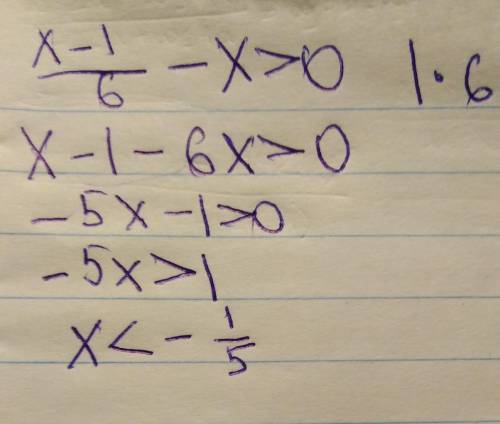 x-1/6 - x > 0 | · 6
x - 1 - 6x > 0
-5x - 1 > 0
-5x > 1
x < - 1/5